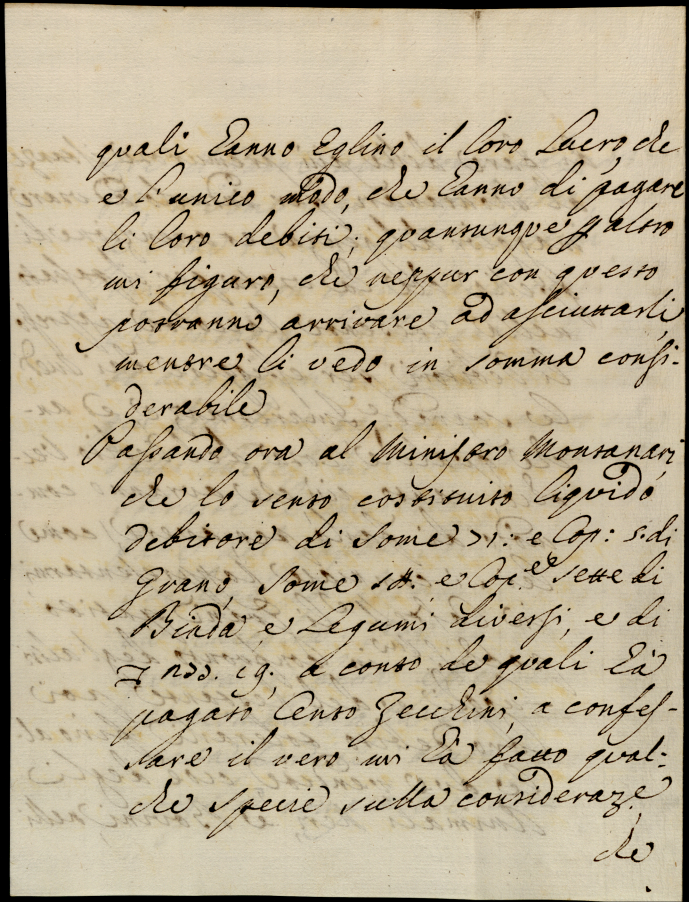 quali hanno Eglino il loro Lucro, che
e l'unico modo, che hanno di pagare
li loro debiti; quantunque p altro
mi figuro, che neppur con questo
potranno arrivare ad asciuttarli,
mentre li vedo in somma consi-
derabile
Passando ora al Ministro Montanari
che lo sento costituito liquido
debitore di some 71: e Cop: 5. di
Grano, some e Cop.ee sette di
Biada, e Legumi diversi, e di
19. a conto de quali hà
pagato Cento Zecchini, a confes-
sare il vero mi hà fatto qual-
che specie sulla consideraz.e
che